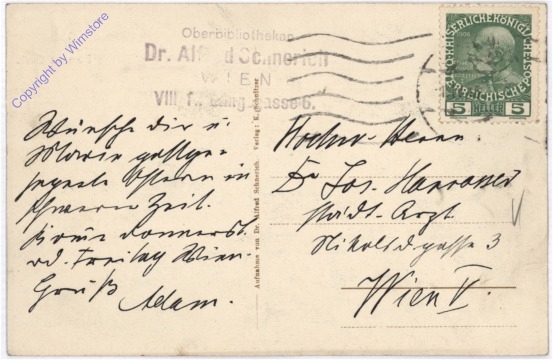 Copyright by Wimstore
Oberbibliothekar
Dr. Alfred Schnerich
WIEN
VIII,
KAISERLICHE KÖNIGLICHE
ÖSTERREICHISCHE POST
5 HELLER 5
Wünsche dir u.
Marie gottge-
segnete Ostern in
schwerer Zeit.
Komme Donnerst.
od. Freitag Wien.
Gruß
Adam.
Aufnahme von Dr. Alfred Schnerich. Verlag: K.
Hochw. Herrn
Dr Jos.
Stadt-Arzt
Nikolsdgasse 3
Wien V.